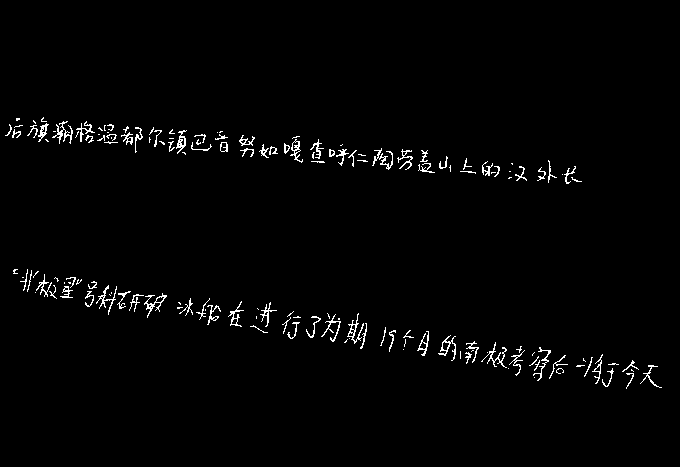 后旗潮格温都尔镇巴音努如嘎查呼仁陶劳盖山上的汉外长
“北极星”号科研破冰船在进行了为期19个月的南极考察后将于今天